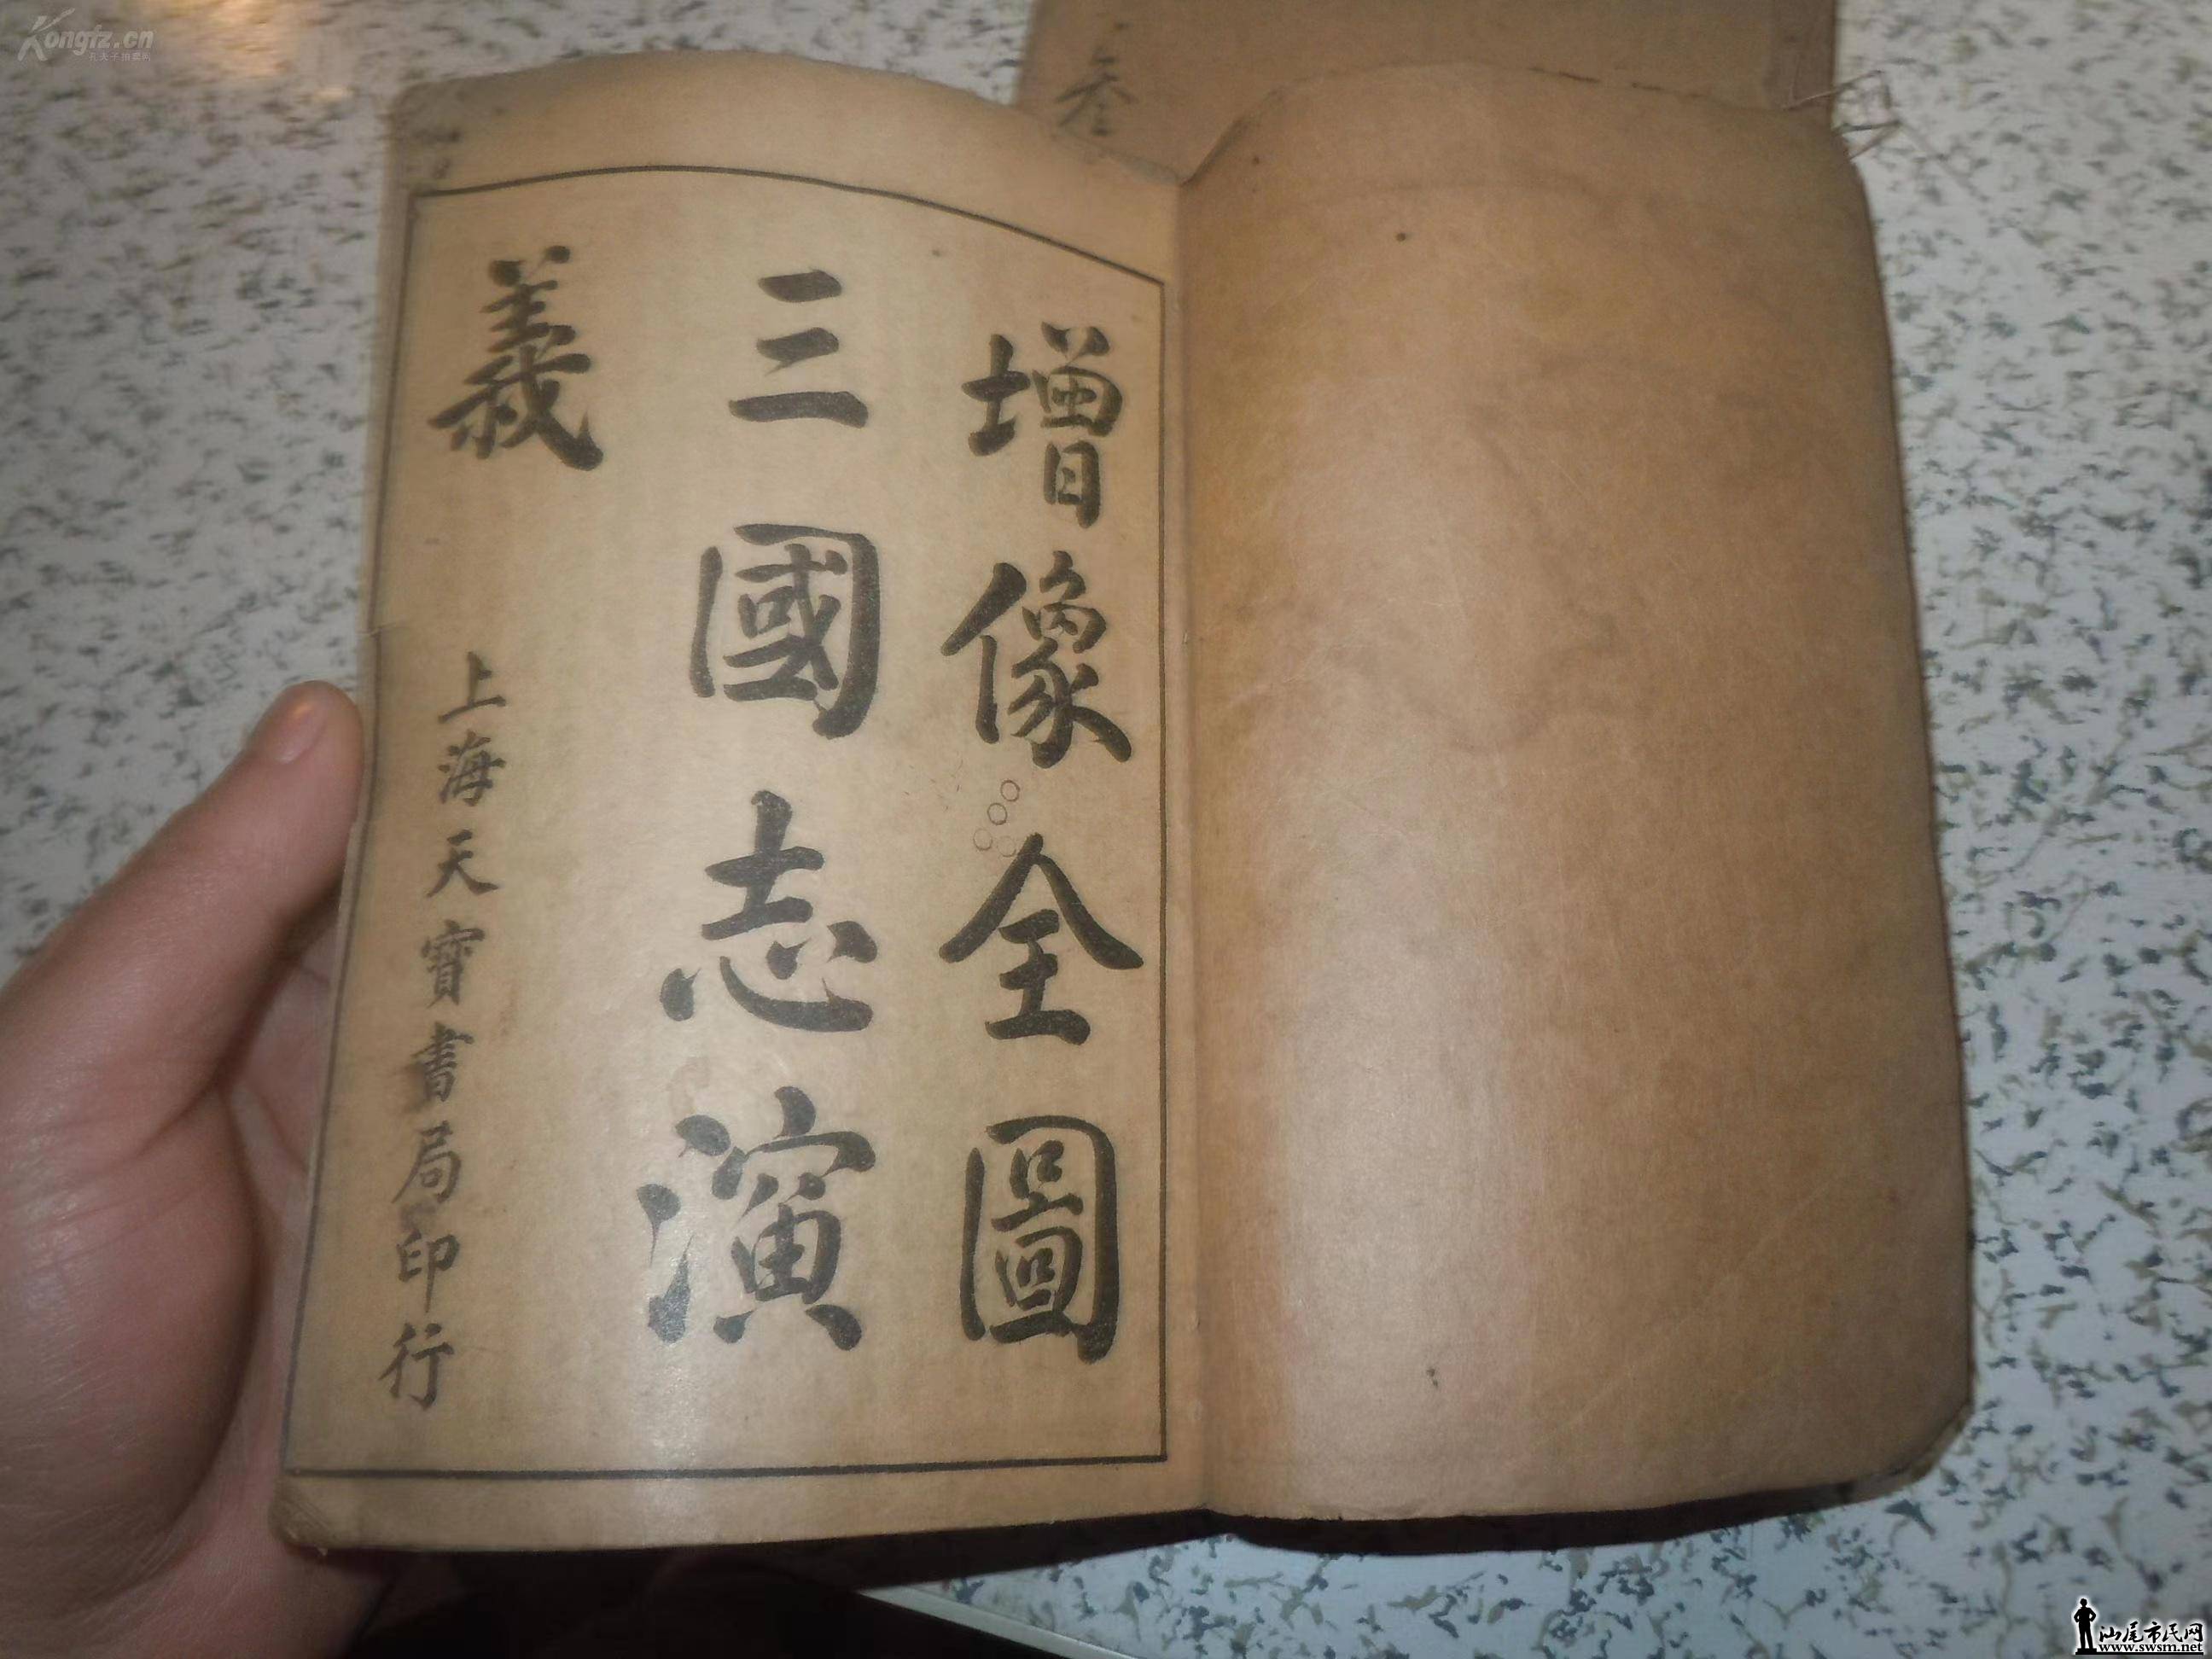 增像全圖
三國志演
義
上海天寶書局印行
叁
Kongfz.cn
孔夫子拍卖网
汕尾市民网
www.swsm.net